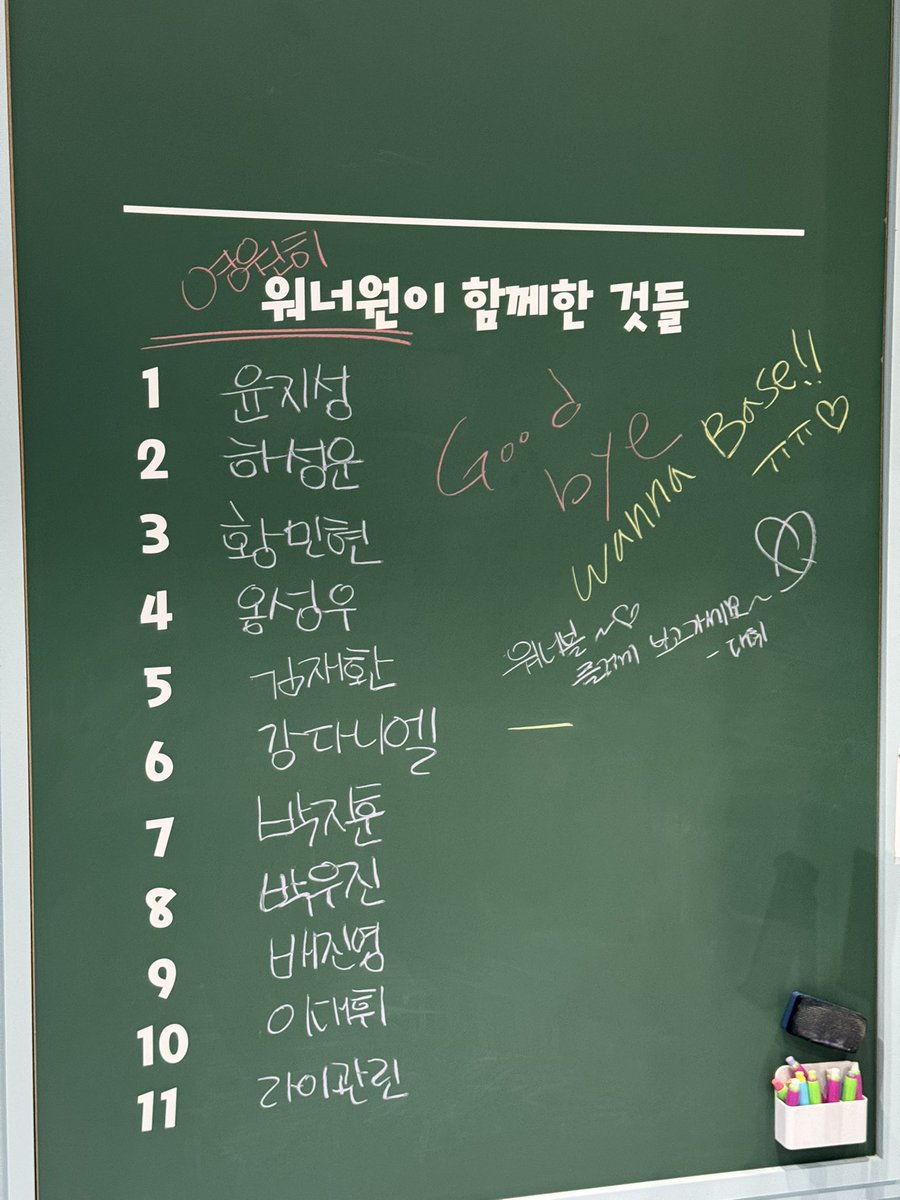 워너원이 함께한 것들
1 윤지성
2 하성운
3 황민현
4 옹성우
5 김재환
6 강다니엘
7 박지훈
8 박우진
9 배진영
10 이대휘
11 라이관린
Good
bye
wanna Base!!
ㅠㅠ♡
워너블~♡
보고가세요~♡
- 대휘